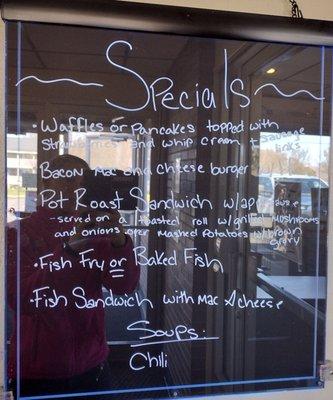 Specials
• Waffles or Pancakes topped with
Strawberries and whip cream & sausage
links
Bacon Mac and cheese burger
Pot Roast Sandwich w/
- served on a toasted roll w/ grilled mushrooms
and onions over mashed Potatoes w/ brown
gravy
• Fish Fry or Baked Fish
• Fish Sandwich with Mac & cheese
Soups:
Chili